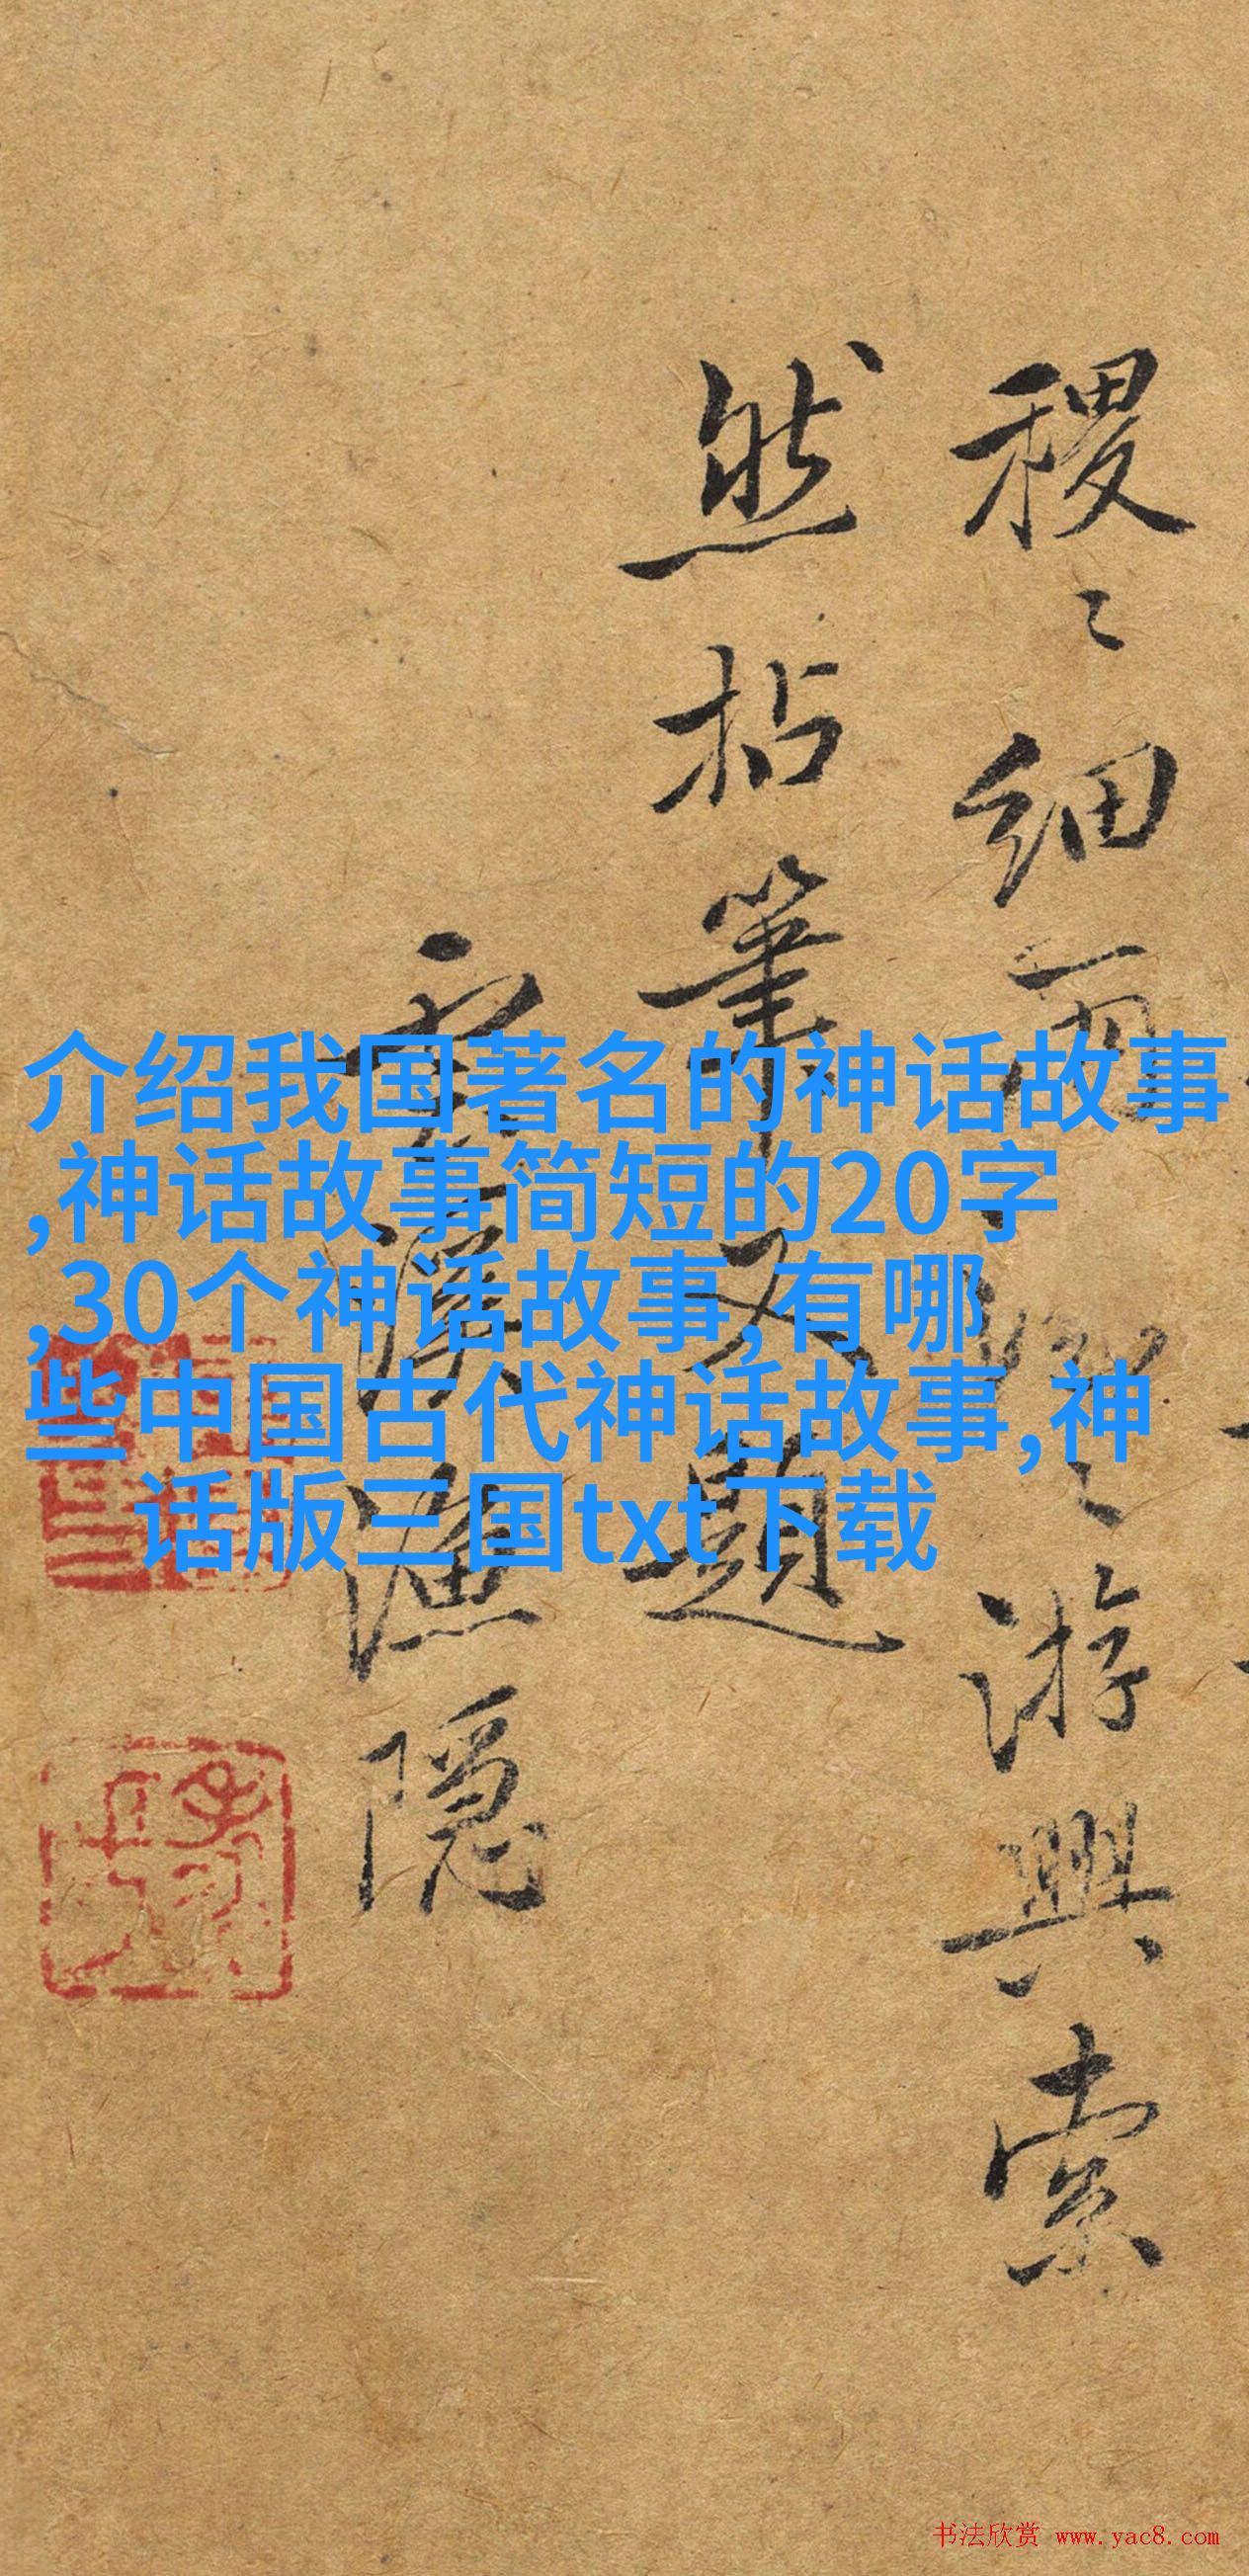 稷〻细雨
〻游興索
然拈筆又題
漁隱
介绍我国著名的神话故事
,神话故事简短的20字
,30个神话故事,有哪
些中国古代神话故事,神
话版三国txt下载
书法欣赏 www.yac8.com